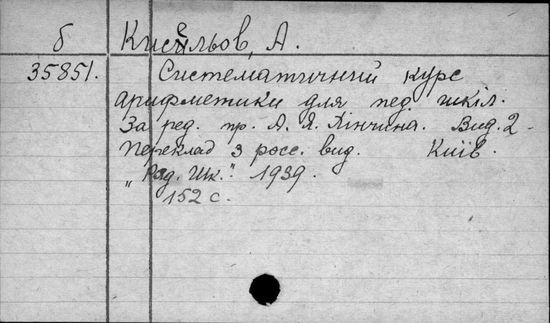 б Кисельов, А.
35851. Систематичний курс
арифметики для пед. шкіл.
За ред. пр. А. Я. Хінчина. Вид. 2-
Переклад з росс. вид. Київ.
„Рад. Шк." 1939.
152 с.